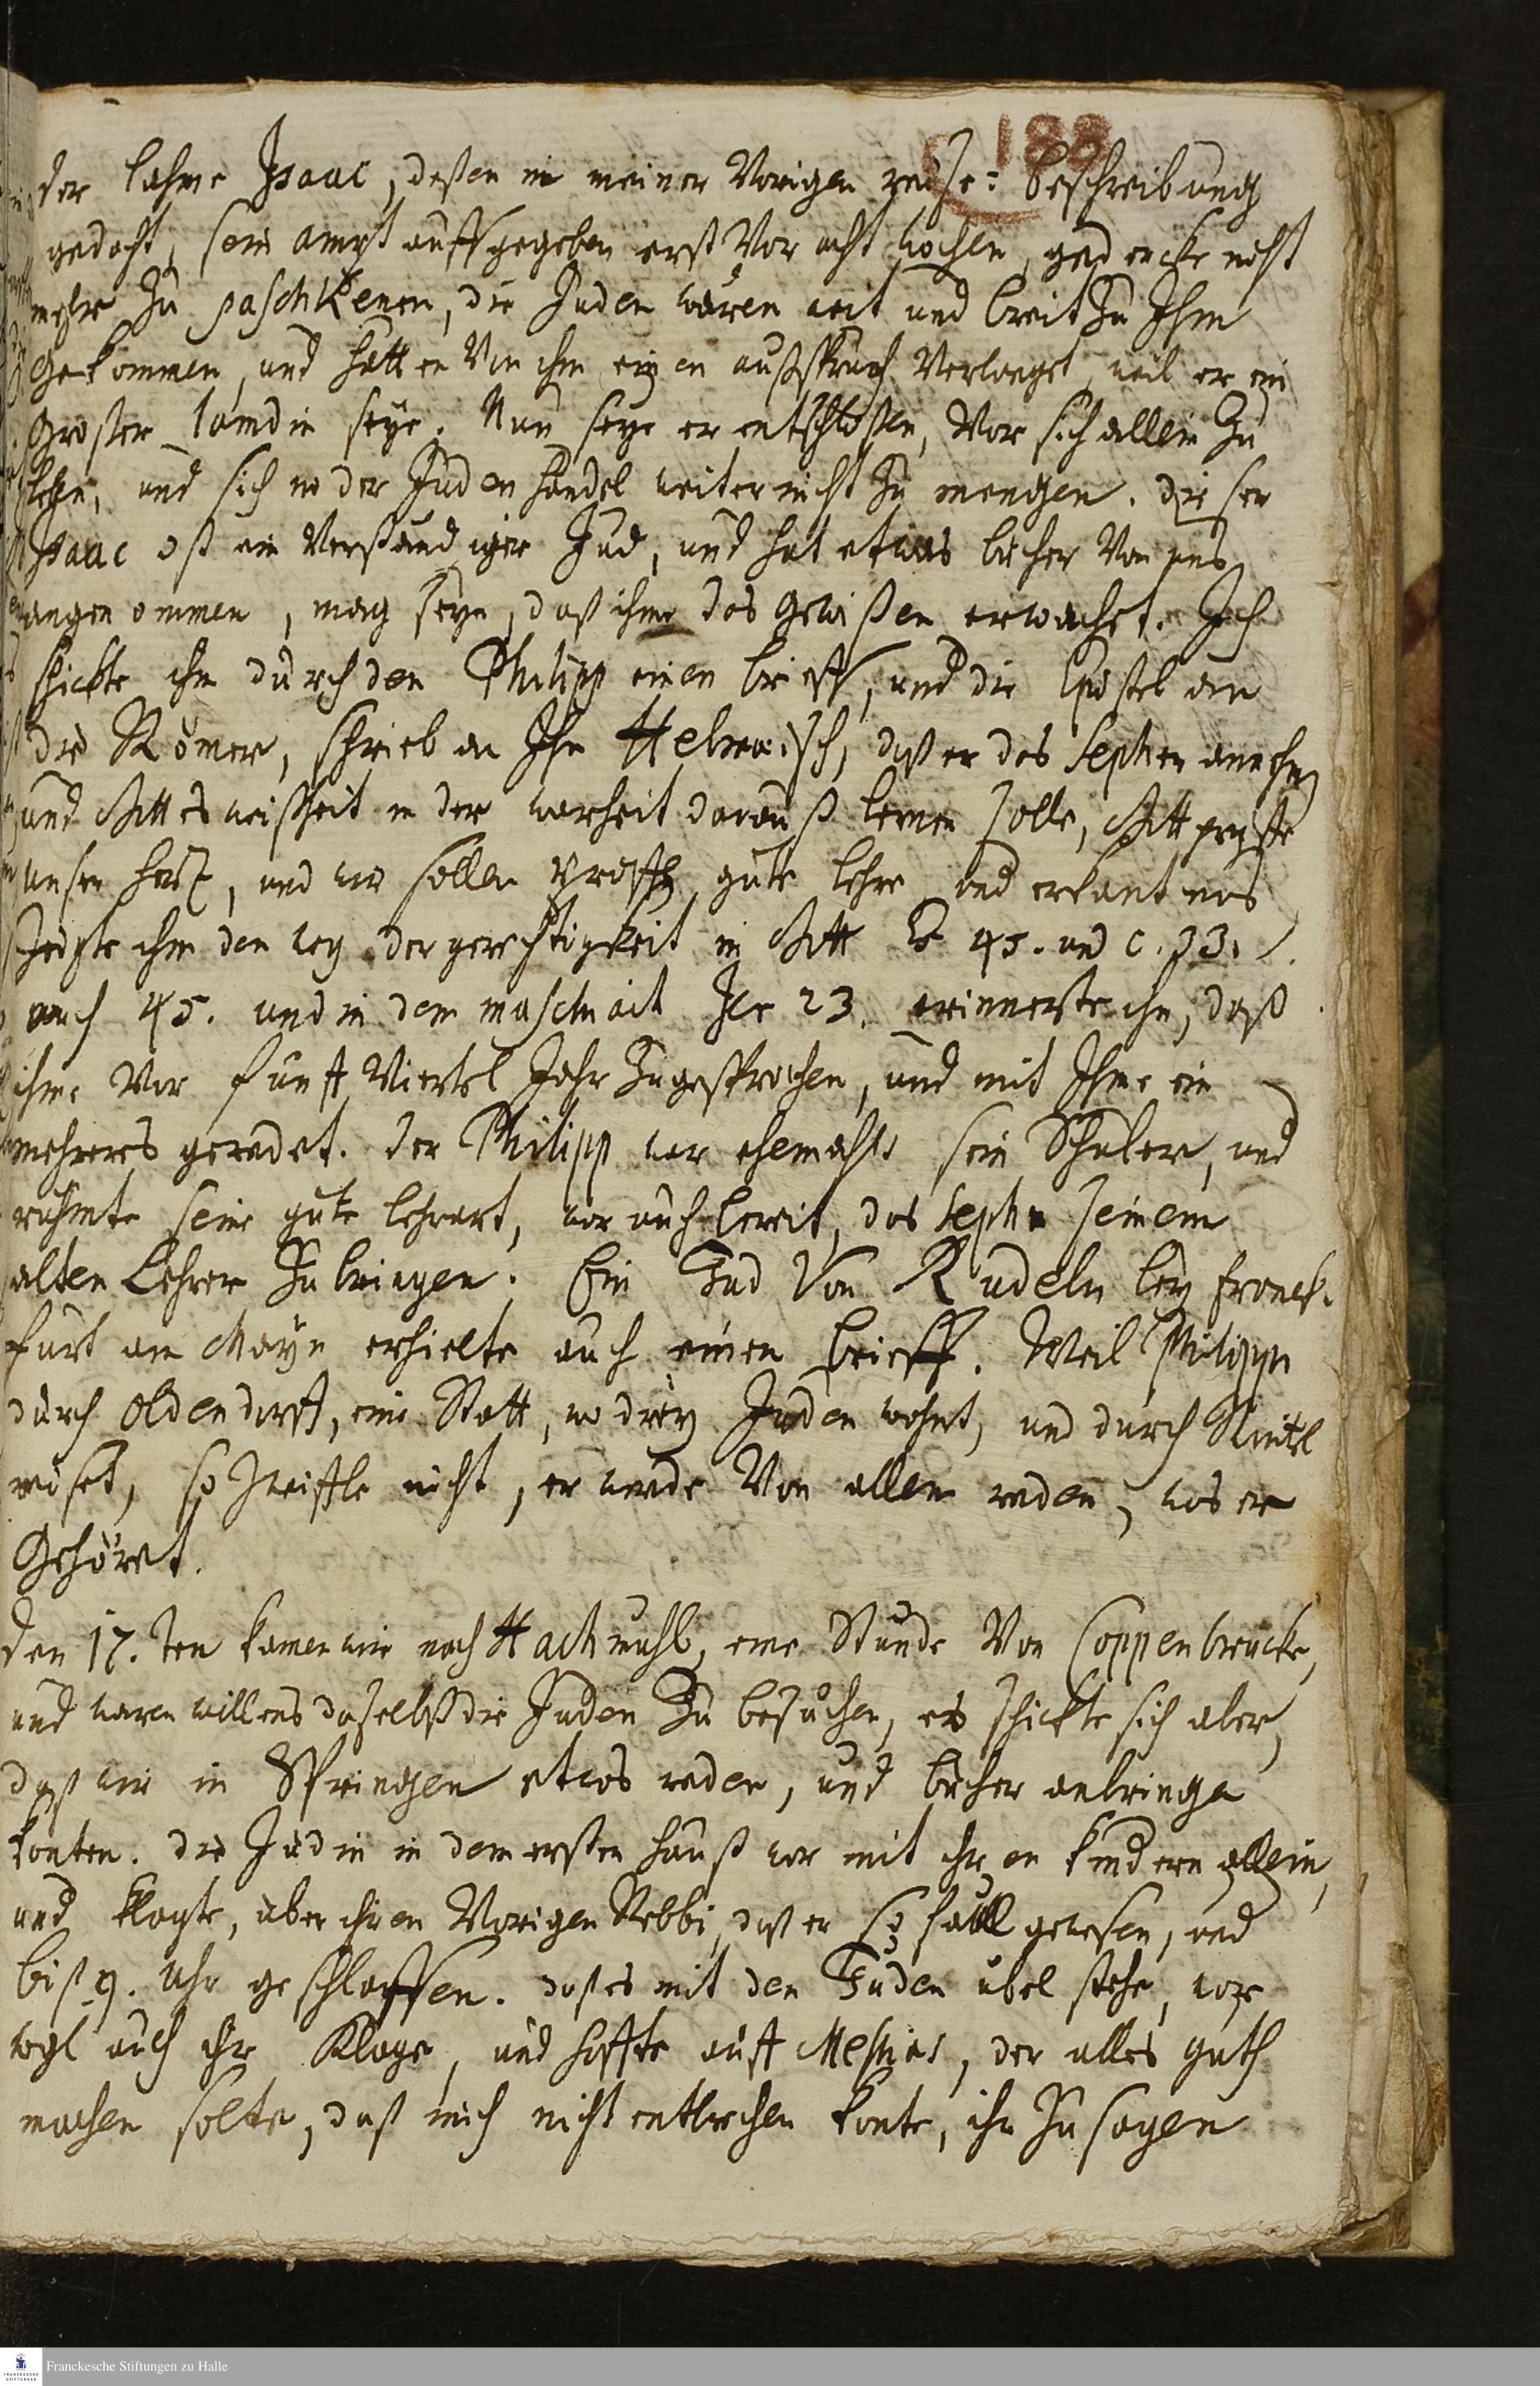 188
der lahme Isaac, deßen in meiner Vorigen reiße-beschreibung
gedacht, sein ampt auffgegeben erst Vor acht wochen, gedencke nicht
mehr zu paschkenen, die Juden wären weit und breit zu Ihm
gekommen, und hätten Von ihm einen außspruch Verlanget, weil er ein
großer lamdin seye. Nun seye er entschloßen, Vor sich allein zu
leben, und sich in der Juden händel weiter nicht zu mengen. dieser
Isaac ist ein Verständiger Jud, und hat etwas bücher Von uns
angenommen, mag seyn, daß ihme das Gewißen erwachet. Ich
schickte ihm durch den Philipp einen brieff, und die Epistel an
die Römer, schrieb an Ihn Hebreisch, daß er das Sepher annehm
und Gottes weißheit in der warheit darauß lernen solle, Gott prüffe
unser hertz, und wir sollen prüffen gute lehre und erkantnus
zeigte ihm den weg der gerechtigkeit in Gott E 45. und c. 53.
nach 45. und in dem maschiach Jer 23. erinnerte ihn, daß
ihme Vor fünff Viertel Jahr zugesprochen, und mit Ihme ein
mehreres geredet. der Philipp war ehemahls sein Schuler, und
rühmte seine gute lehrart, war auch bereit, das Sepher seinem
alten Lehrer zu bringen. Ein Jud Von Rüdeln bey franck-
furt am Mayn erhielte auch einen brieff. Weil Philipp
durch Oldendorff, eine Statt, wo drey Juden wohnt, und durch Rintel
reiset, so zweiffle nicht, er werde Von allem reden, was er
Gehöret.
Den 17.ten kamen wir nach Hachmuhl, eine Stunde Von Coppenbrucke,
und waren willens daselbst die Juden zu besuchen, es schickte sich aber,
daß wir in Springen etwas reden, und bücher anbringen
konten. die Jüdin in dem ersten hauß war mit ihren kindern allein,
und klagte, über ihren Vorigen Rebbi, daß er so faull gewesen, und
biß 9. Uhr geschlaffen. daß es mit den Juden übel stehe, ware
wohl auch ihr Klage, und hoffte auff Messias, der alles guth
machen solte, daß mich nicht entbrechen konte, ihr zu sagen
Franckesche Stiftungen zu Halle